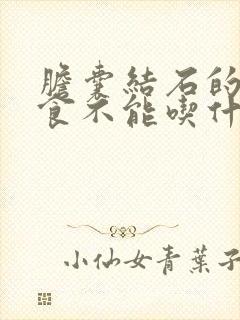 膽囊結石的
食不能喫什
小仙女青葉子